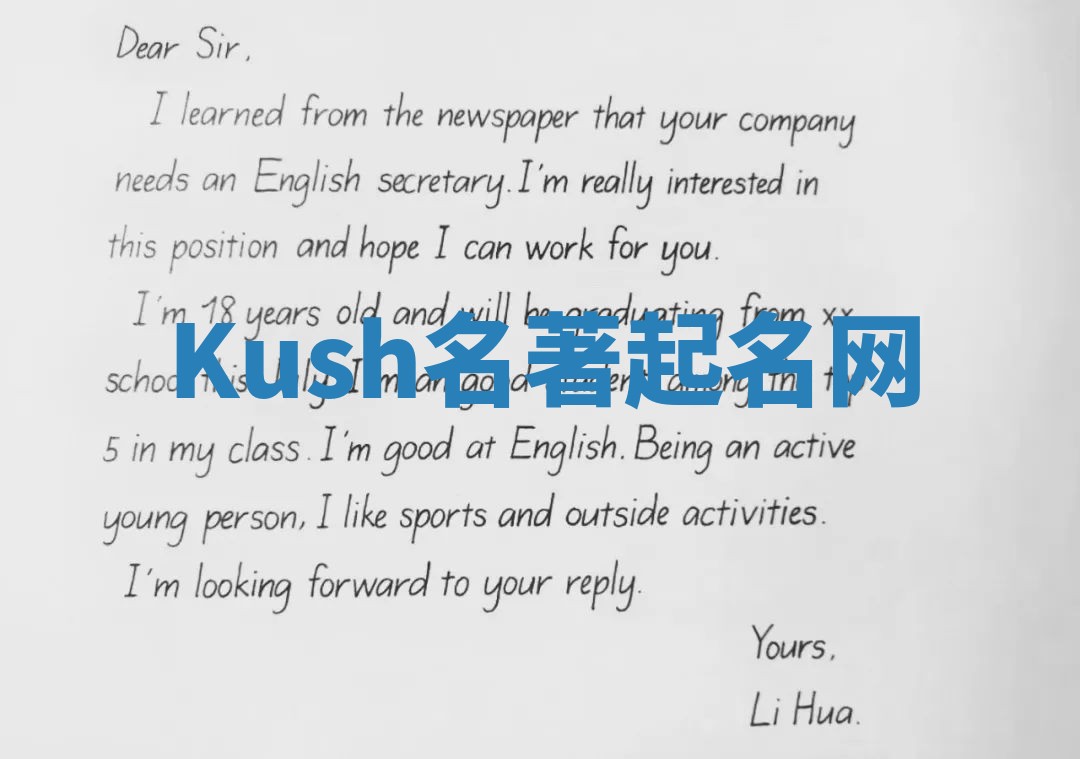 Dear Sir,
I learned from the newspaper that your company
needs an English secretary. I'm really interested in
this position and hope I can work for you.
I'm 18 years old and will be graduating from xx
Kush名著起名网
school this July. I'm an good student among the top
5 in my class. I'm good at English. Being an active
young person, I like sports and outside activities.
I'm looking forward to your reply.
Yours,
Li Hua.